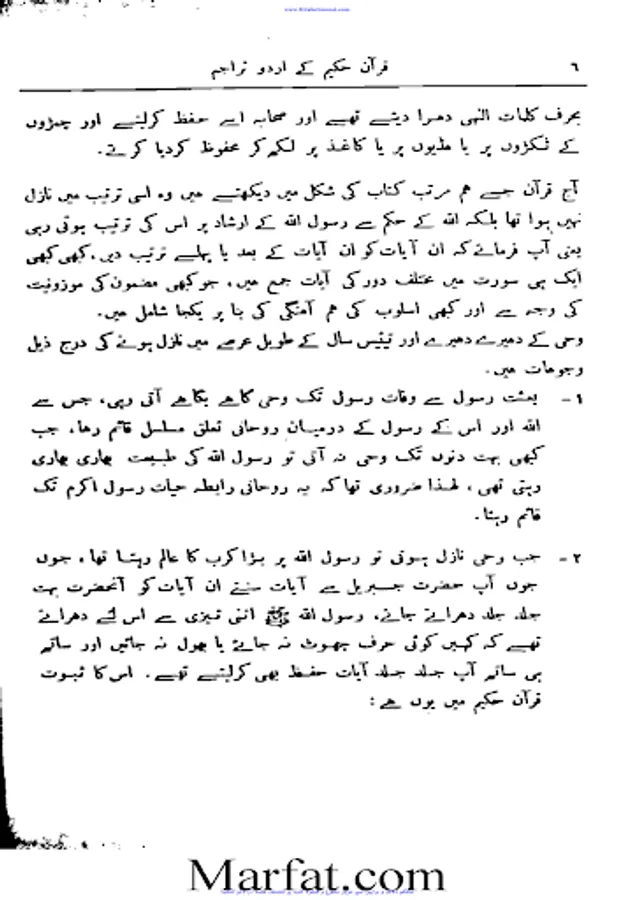 قرآن حکیم کے اردو تراجم ٦
بحرف کلمات الٰہی دھرا دیتے تھے اور صحابہ اسے حفظ کرلیتے اور چمڑوں
کے ٹکڑوں پر یا ھڈیوں پر یا کاغذ پر لکھ کر محفوظ کردیا کرتے۔
آج قرآن جسے ھم مرتب کتاب کی شکل میں دیکھتے ھیں وہ اسی ترتیب میں نازل
نہیں ہوا تھا بلکہ اللہ کے حکم سے رسول اللہ کے ارشاد پر اس کی ترتیب ہوتی رہی
یعنی آپ فرماتے کہ ان آیات کو ان آیات کے بعد یا پہلے ترتیب دیں، کبھی کبھی
ایک ہی سورت میں مختلف دور کی آیات جمع ھیں، جو کبھی مضمون کی موزونیت
کی وجہ سے اور کبھی اسلوب کی ھم آھنگی کی بنا پر یکجا شامل ھیں۔
وحی کے دھیرے دھیرے اور تیئیس سال کے طویل عرصے میں نازل ہونے کی درج ذیل
وجوھات ھیں۔
١۔ بعثت رسول سے وفات رسول تک وحی گاھے بگاھے آتی رہی، جس سے
اللہ اور اس کے رسول کے درمیان روحانی تعلق مسلسل قائم رھا، جب
کبھی بہت دنوں تک وحی نہ آتی تو رسول اللہ کی طبیعت بھاری بھاری
رہتی تھی، لھذا ضروری تھا کہ یہ روحانی رابطہ حیات رسول اکرم تک
قائم رہتا۔
٢۔ جب وحی نازل ہوتی تو رسول اللہ پر بڑا کرب کا عالم رہتا تھا، جوں
جوں آپ حضرت جبریل سے آیات سنتے ان آیات کو آنحضرت بہت
جلد جلد دھراتے جاتے، رسول اللہ ﷺ اتنی تیزی سے اس لئے دھراتے
تھے کہ کہیں کوئی حرف چھوٹ نہ جائے یا بھول نہ جائیں اور ساتھ
ہی ساتھ آپ جلد جلد آیات حفظ بھی کرلیتے تھے۔ اس کا ثبوت
قرآن حکیم میں یوں ھے:
Marfat.com